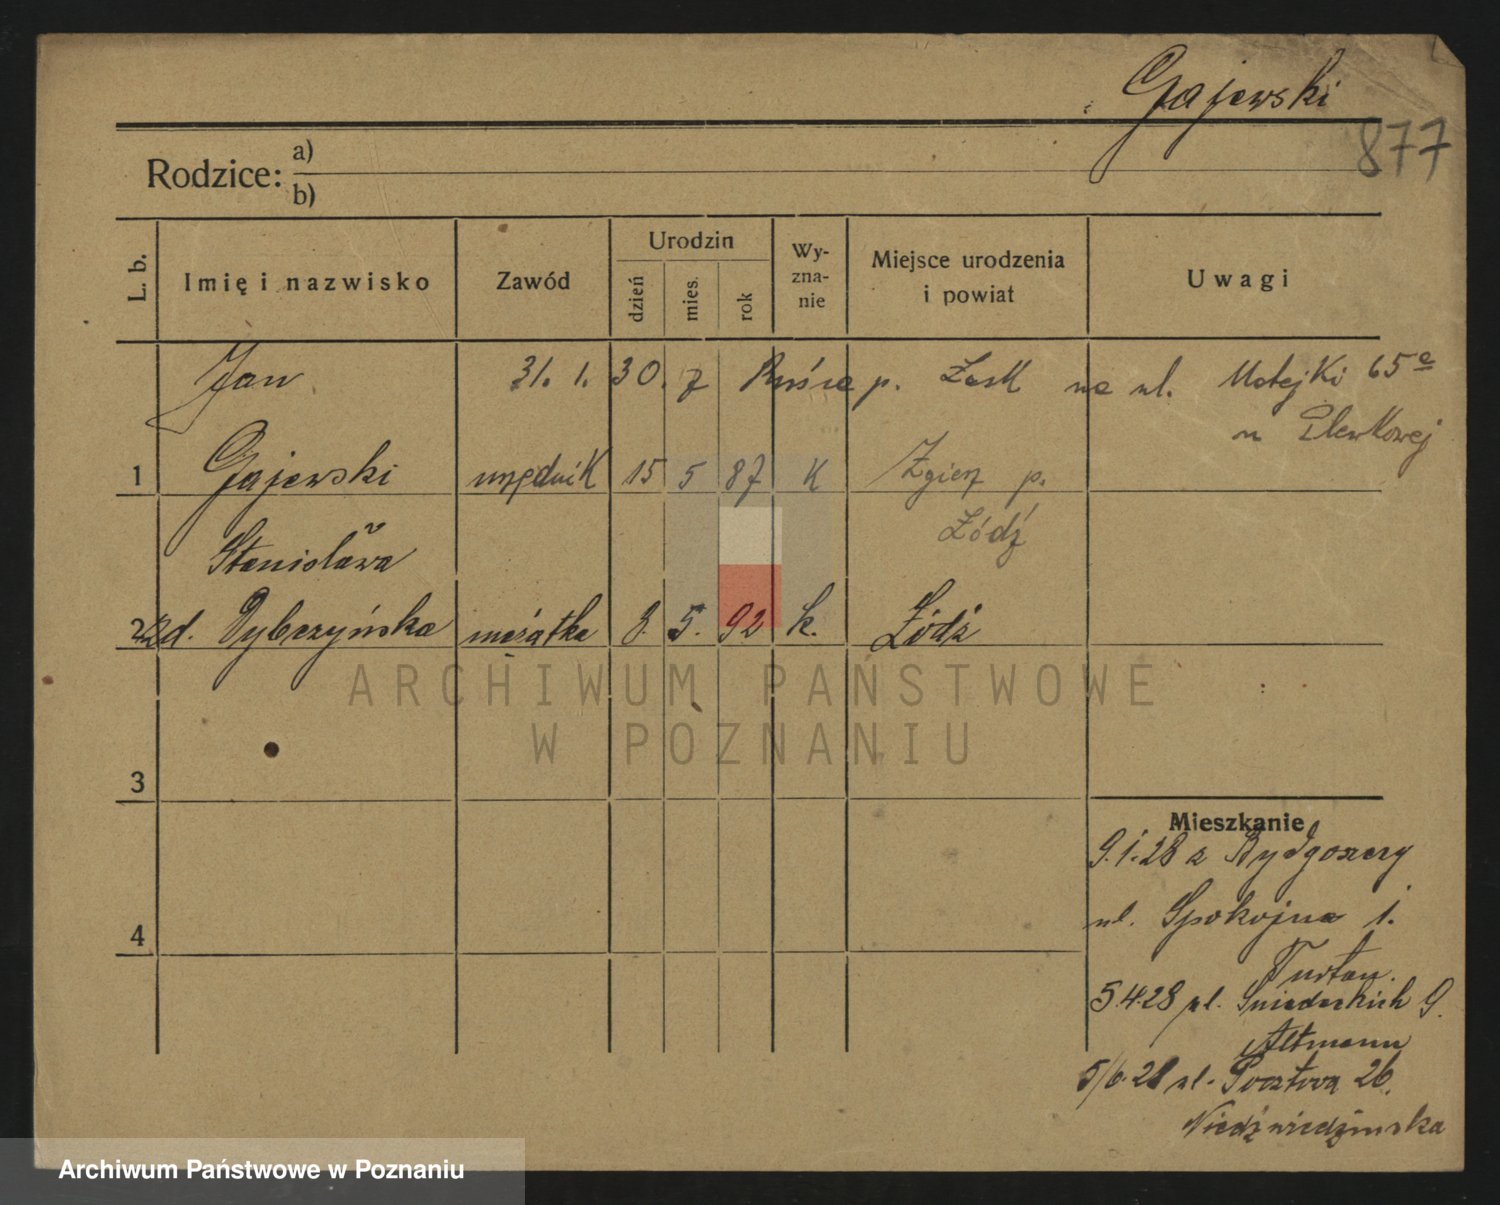 Gajewski
877
Rodzice: a)
b)
L. b.
Imię i nazwisko
Zawód
Urodzin
dzień
mies.
rok
Wy-
zna-
nie
Miejsce urodzenia
i powiat
Uwagi
Jan 31. 1. 30. z p. Łask na ul. Matejki 65a
Gajewski
1 urzędnik 15 5 87 K Zgierz p.
Łódź
Stanisława
2 zd. Dybczyńska mężatka 8. 5. 92 k. Łódź
ARCHIWUM PAŃSTWOWE
W POZNANIU
3
4
Mieszkanie
9.1.28 z Bydgoszczy
ul. Spokojna 1.
5.4.28 ul. Śniadeckich 9.
Altmann
5/6.28 ul. Pocztowa 26.
Niedźwiedzińska
Archiwum Państwowe w Poznaniu